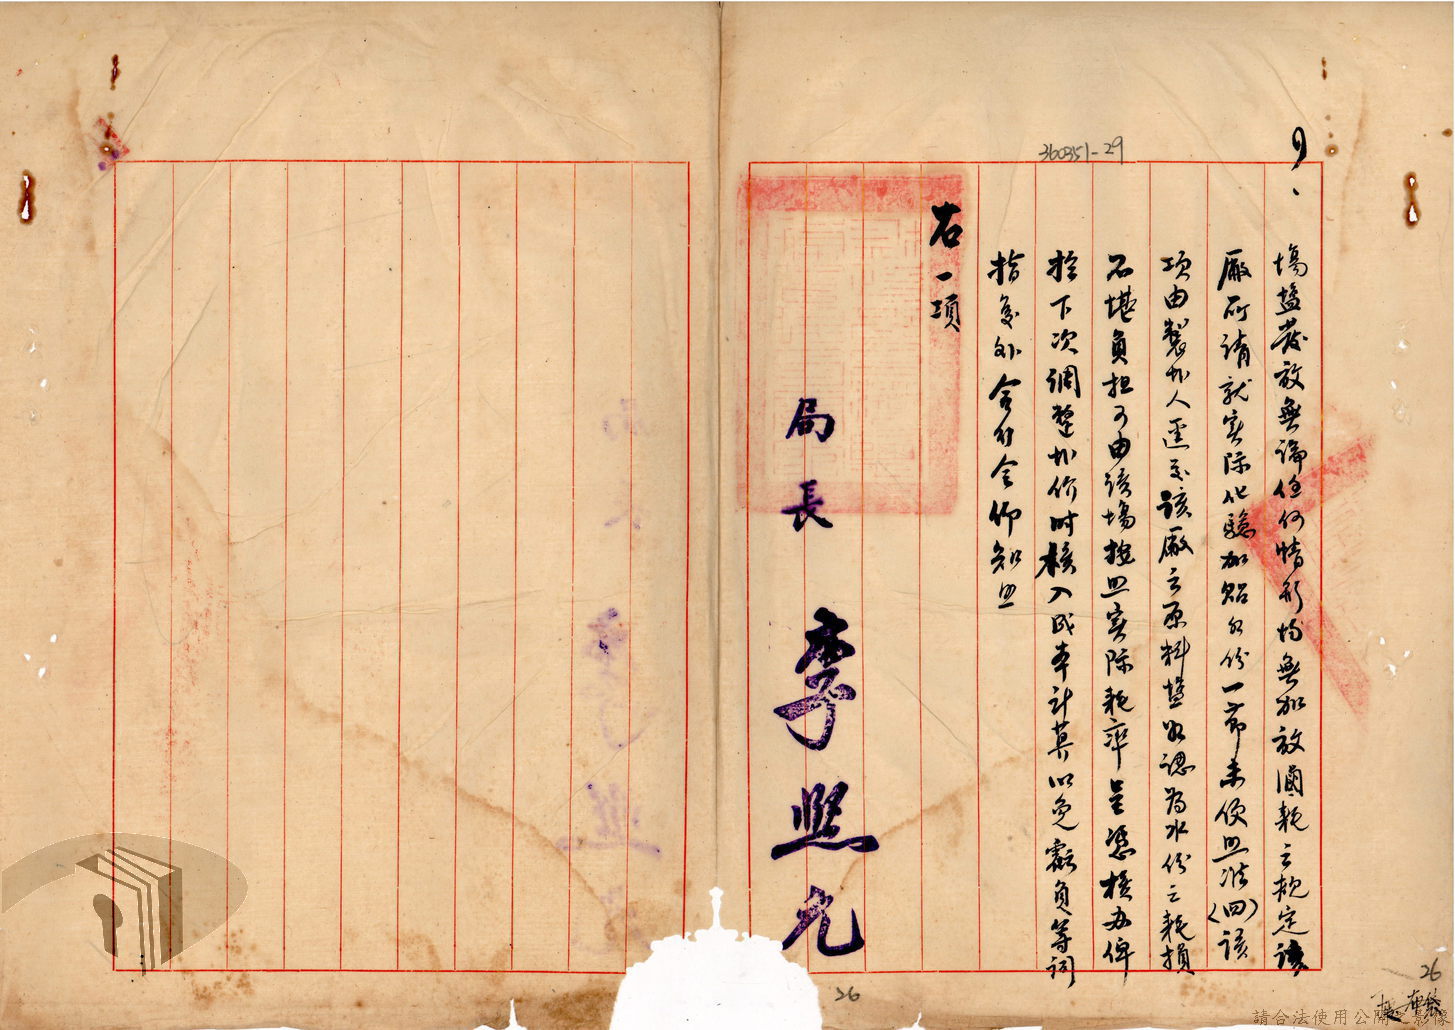 360351-29
9、
場鹽發放無論任何情形均無加放滷耗之規定該
廠所請就实际化驗加貼水份一節未便照准(四)該
項由製外人運交該廠之原料鹽如認為水份之耗損
不堪負担可由該場按照实际耗率呈憑核办俾
於下次調整外价时核入成本計算以免虧負等詞
指复外合行令仰知照
右一項
局長 李熙九
26
26
請合法使用公開之影像